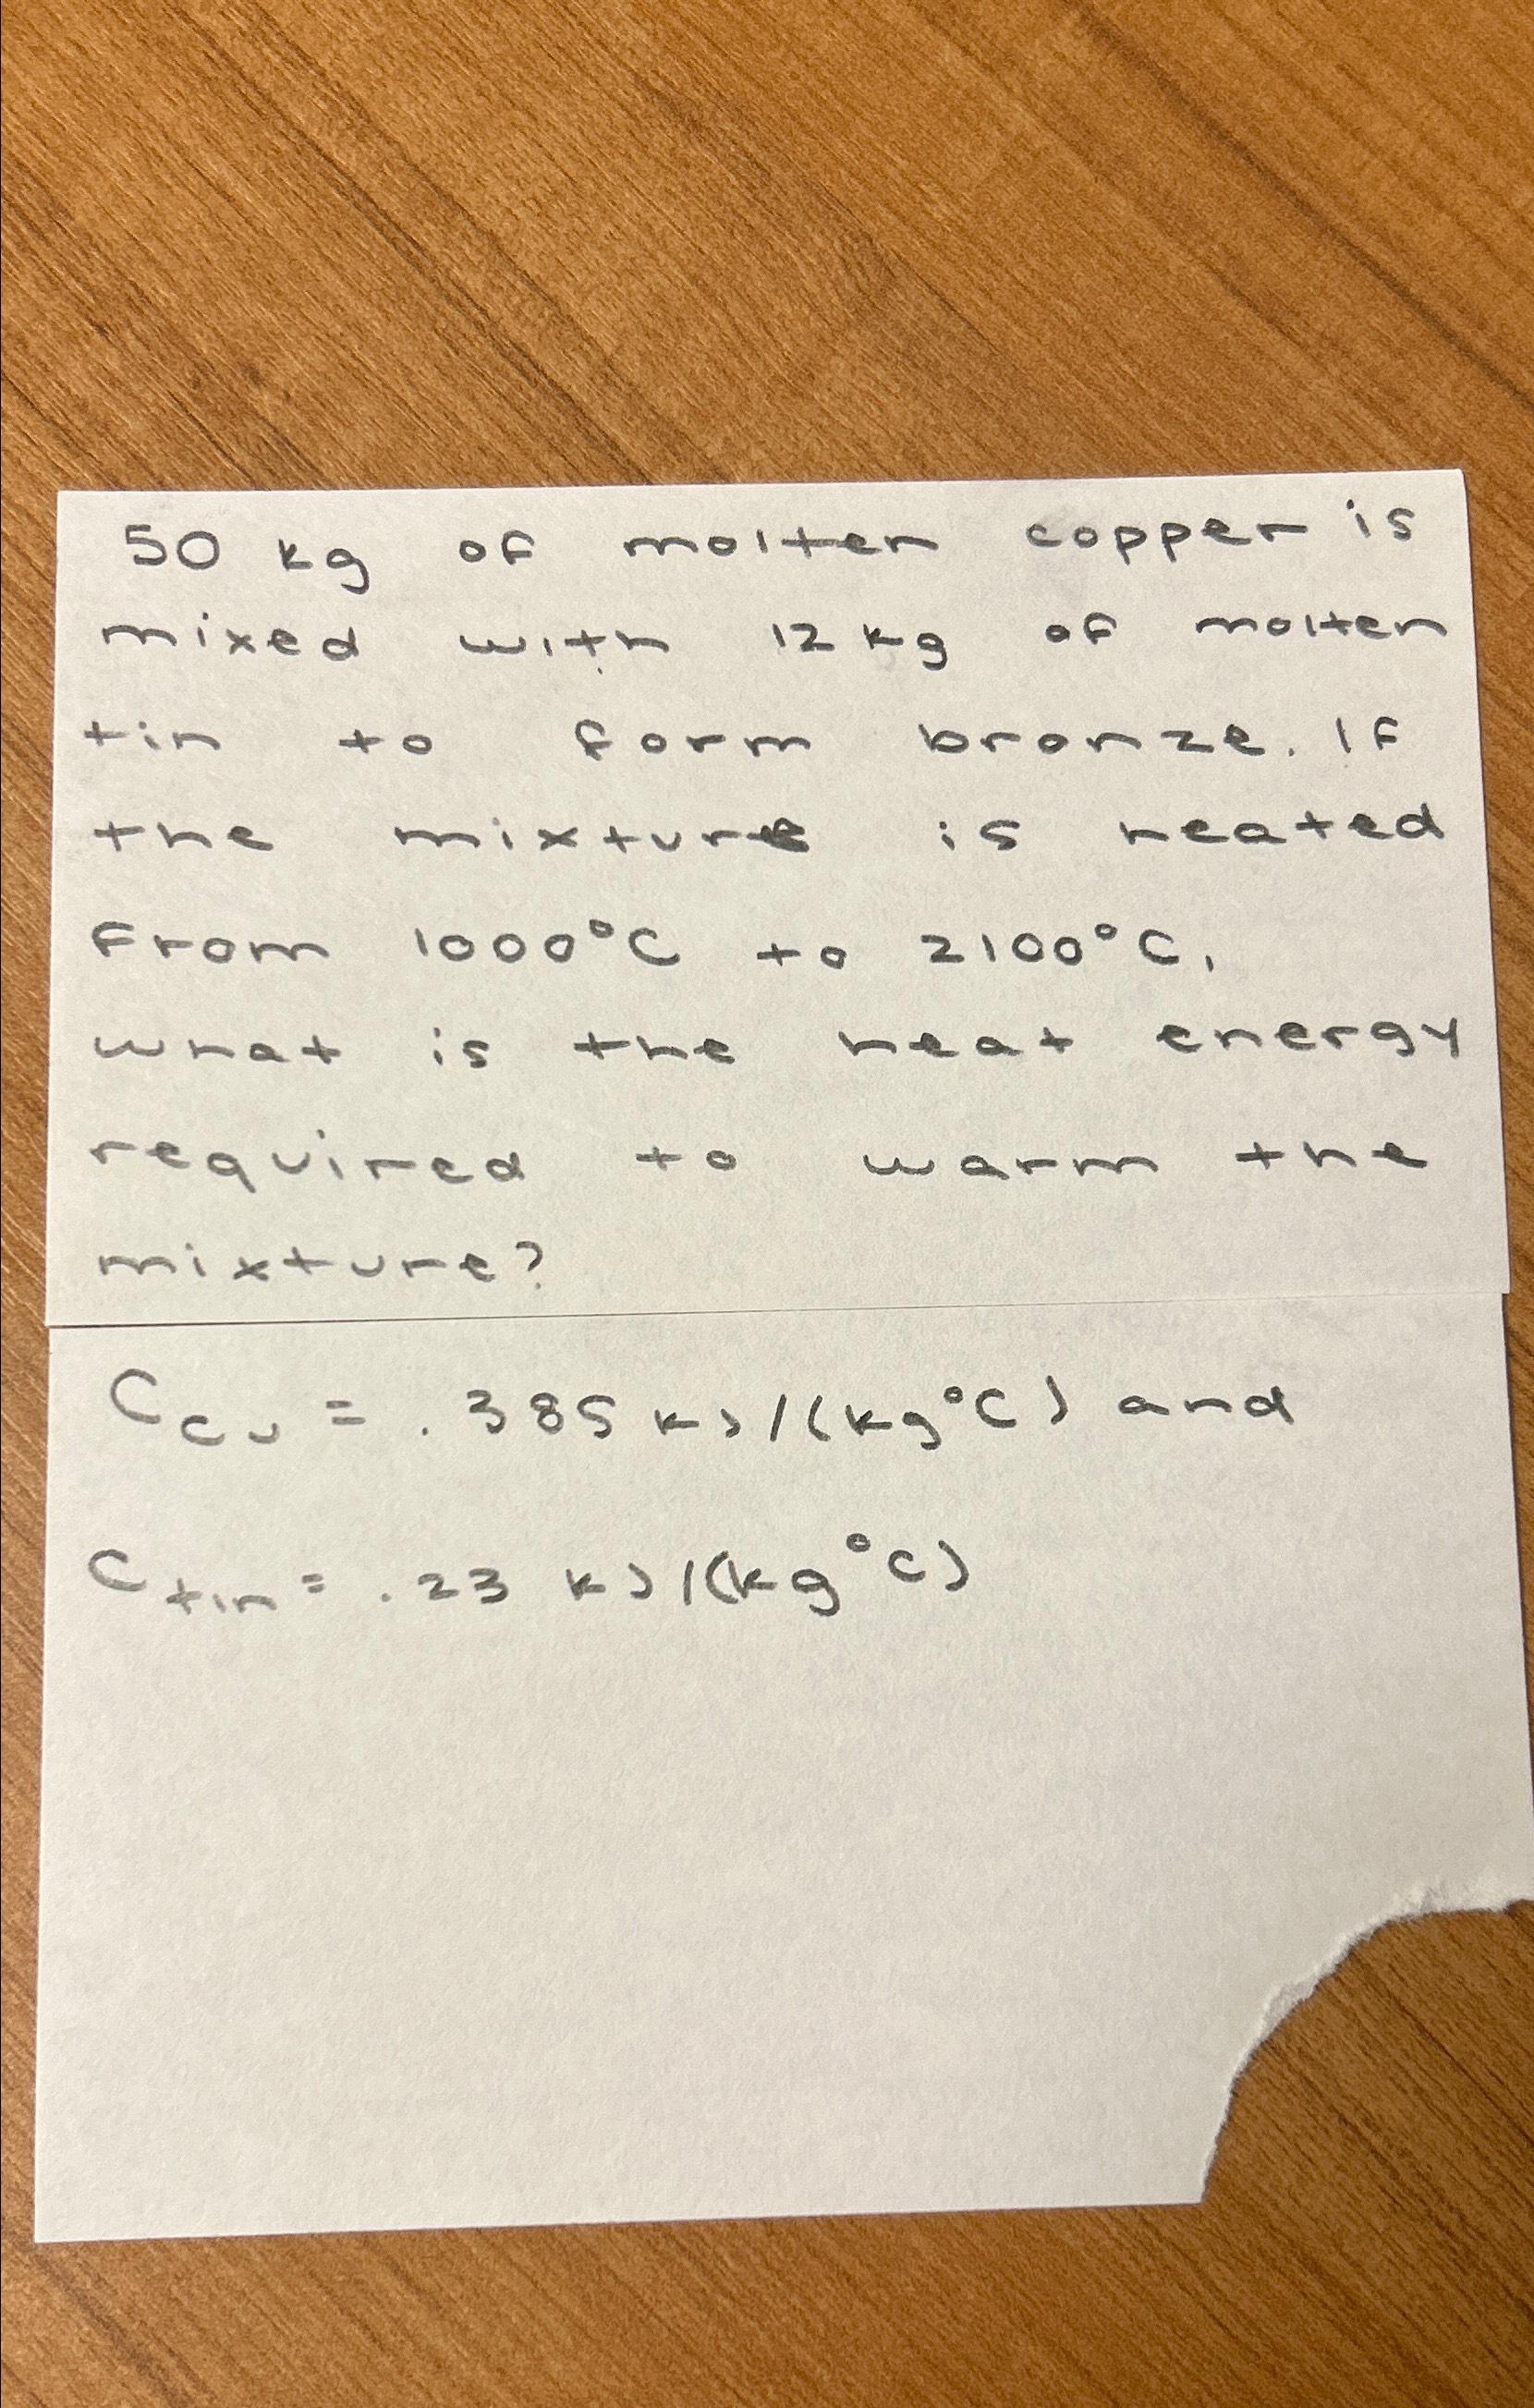 50 kg of molten copper is
mixed with 12 kg of molten
tin to form bronze. If
the mixture is heated
from 1000°C to 2100°C,
what is the heat energy
required to warm the
mixture?
C_cu = .385 kJ/(kg°C) and
C_tin = .23 kJ/(kg°C)